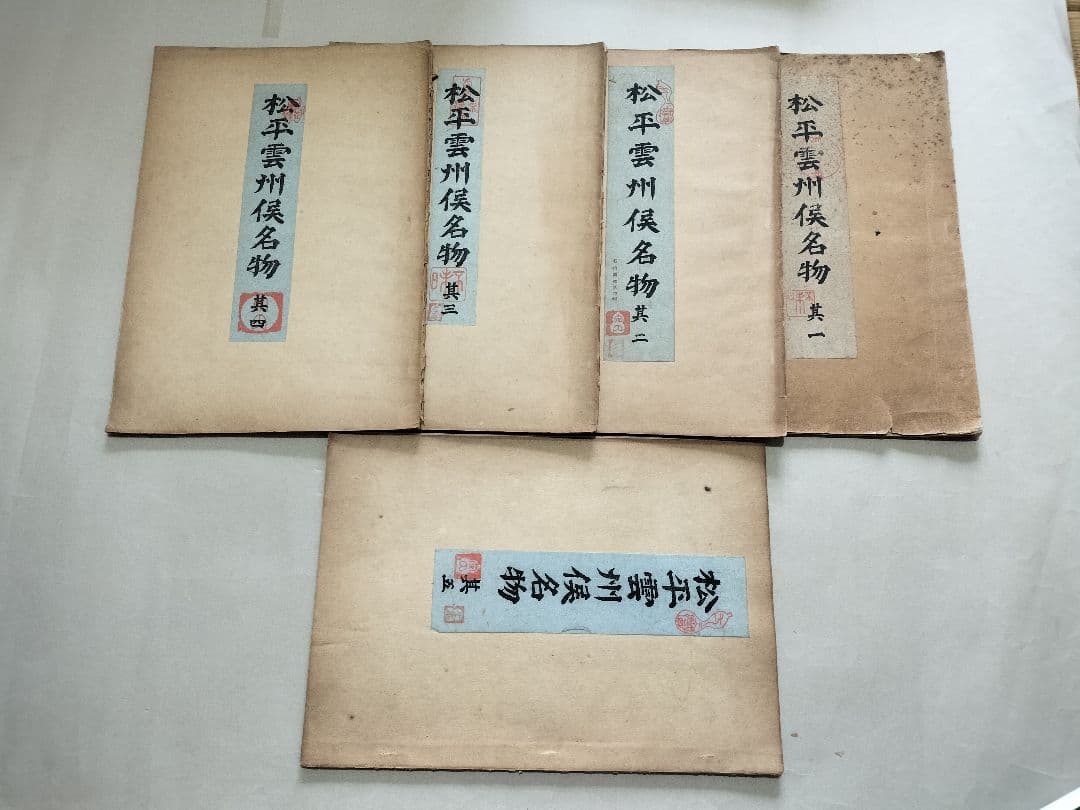 松平雲州侯名物
其一
松平雲州侯名物
其二
松平雲州侯名物
其三
松平雲州侯名物
其四
松平雲州侯名物
其五